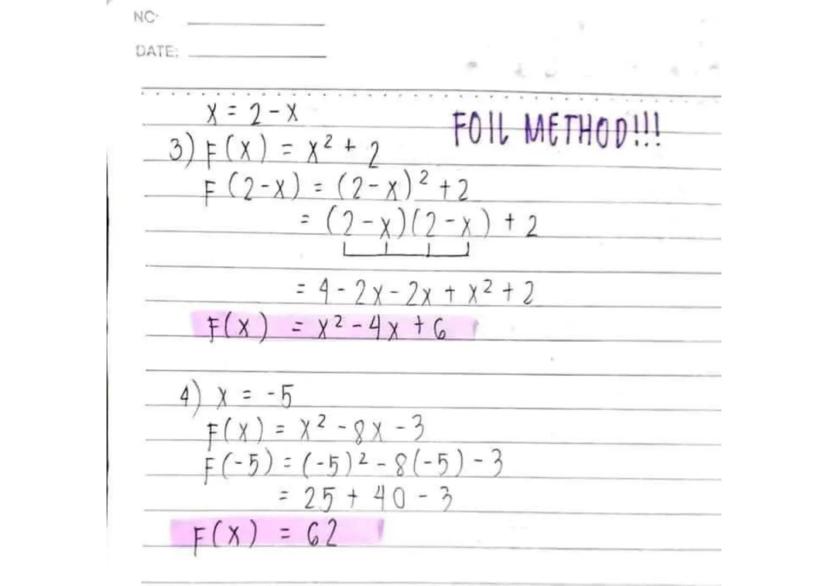 NO.
DATE:
x = 2 - x
FOIL METHOD!!!
3) F(x) = x² + 2
F(2-x) = (2-x)² + 2
= (2-x)(2-x) + 2
= 4 - 2x - 2x + x² + 2
F(x) = x² - 4x + 6
4) x = -5
F(x) = x² - 8x - 3
F(-5) = (-5)² - 8(-5) - 3
= 25 + 40 - 3
F(x) = 62